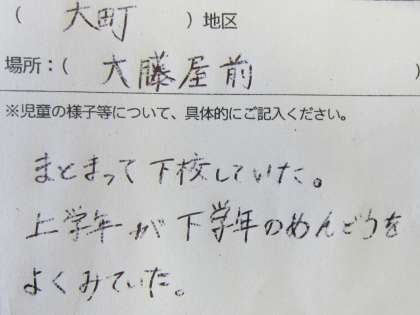 ( 大町 ) 地区
場所：( 大藤屋前 )
※児童の様子等について、具体的にご記入ください。
まとまって下校していた。
上学年が下学年のめんどうを
よくみていた。